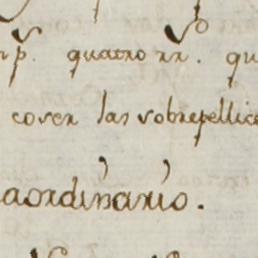 quatro rr. qu
coser las sobrepellice
aordinario.